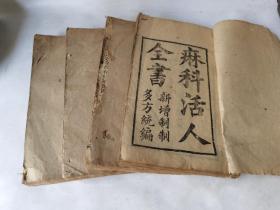 麻科活人
全書
新增制制
多方統編